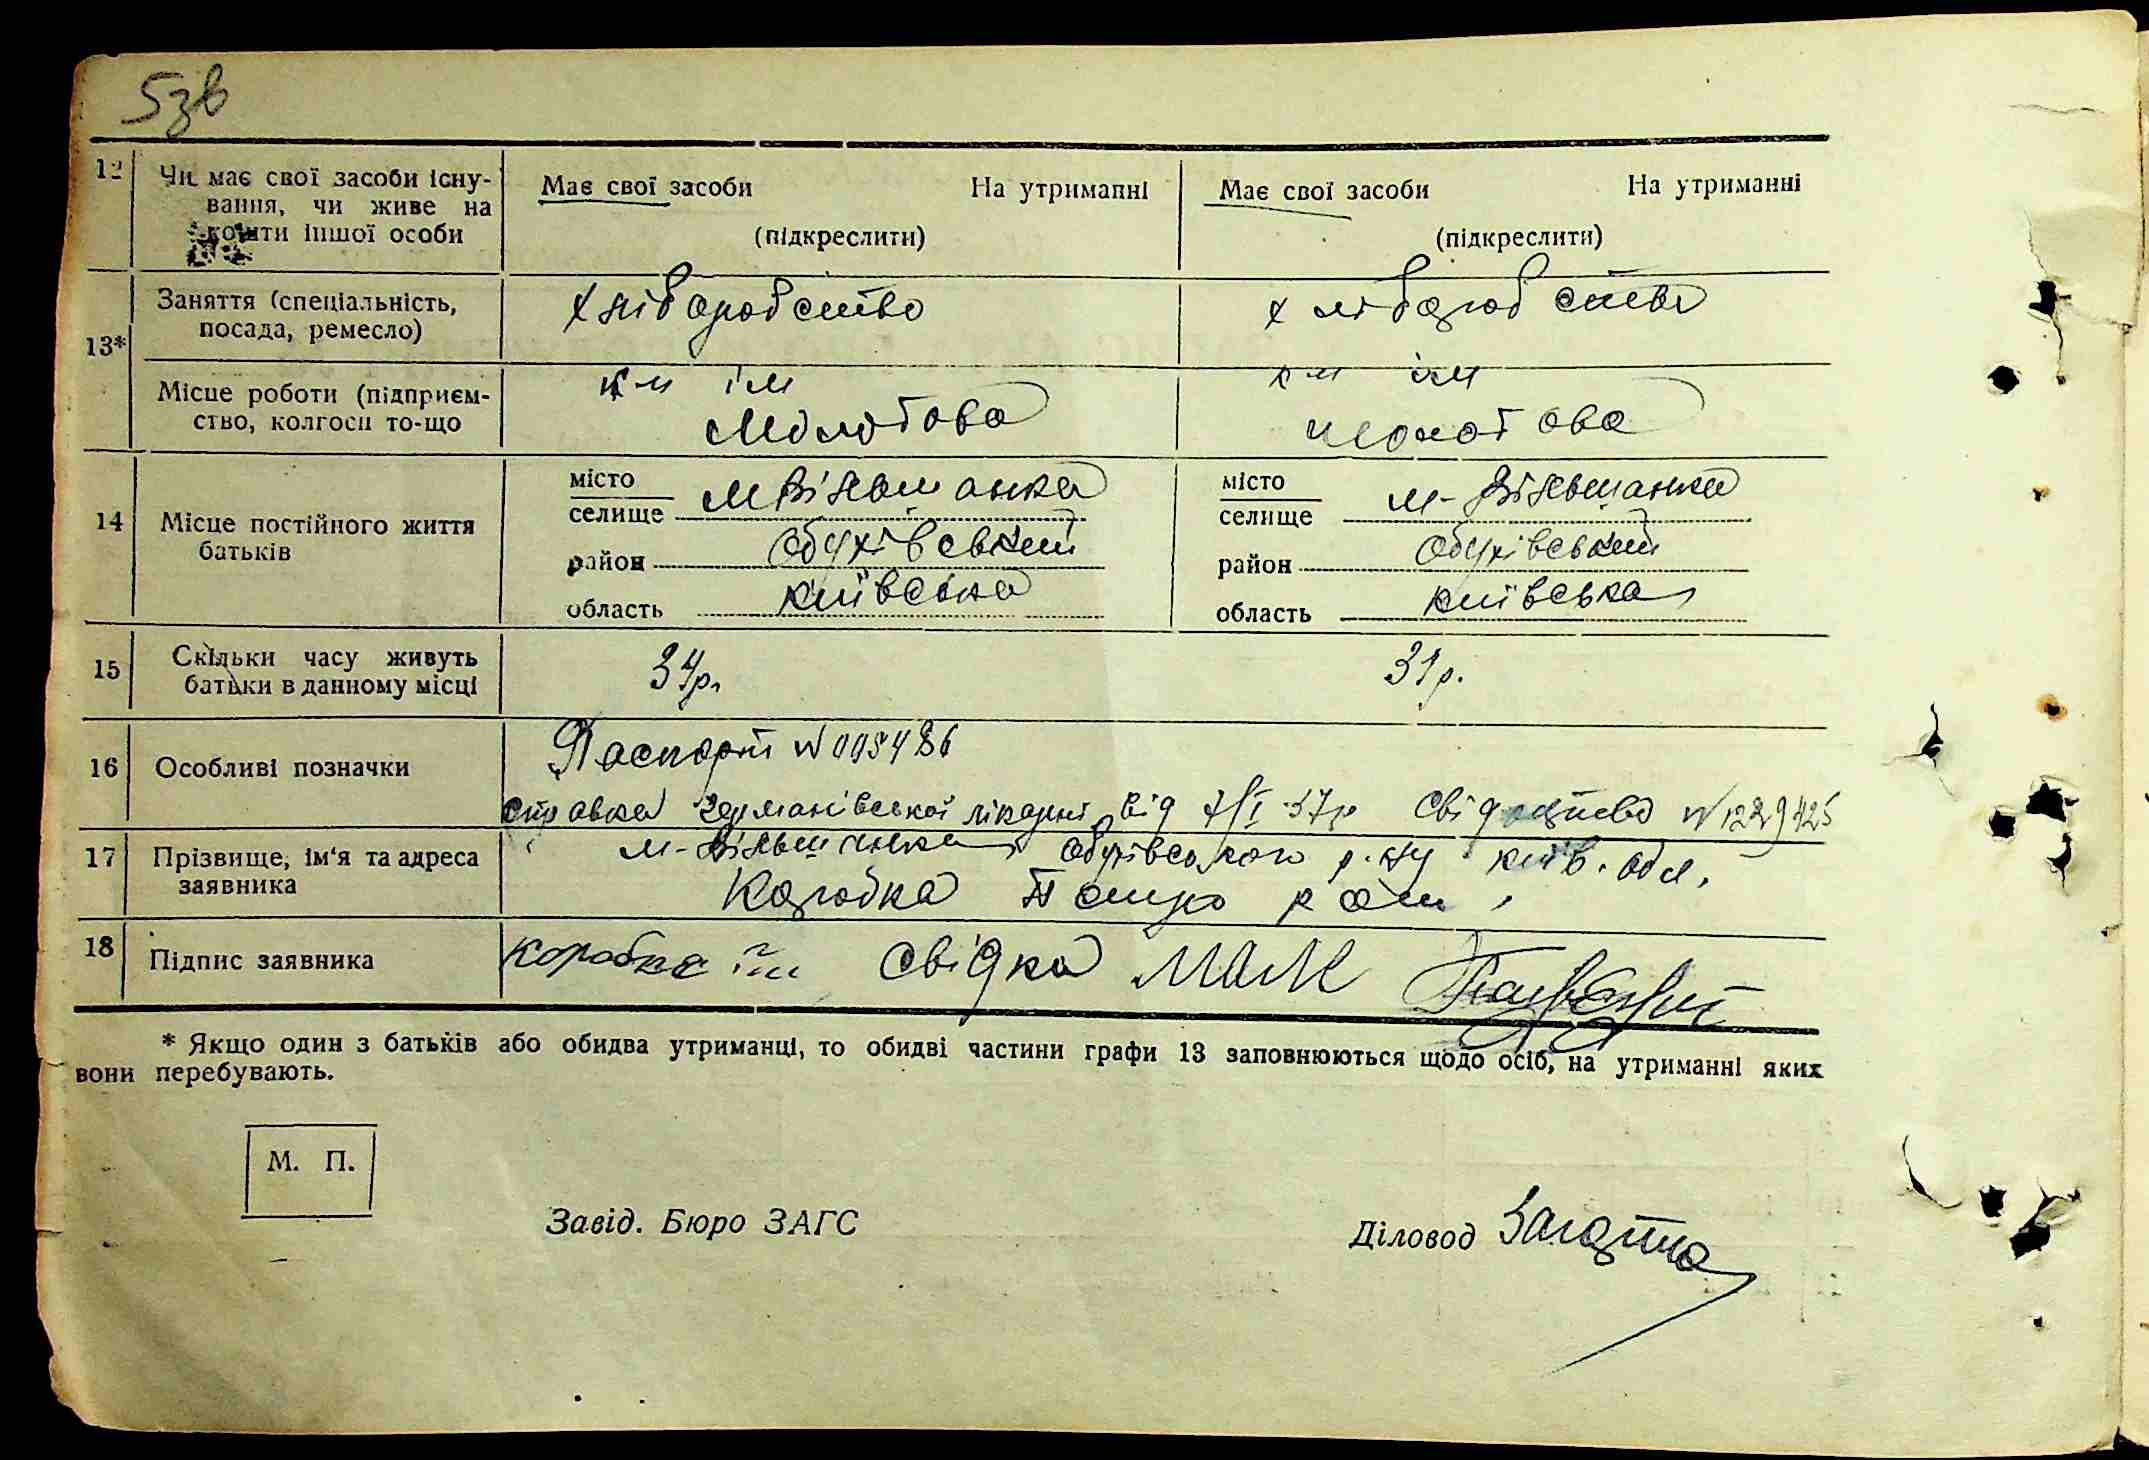 5зв
12 Чи має свої засоби існу- Має свої засоби На утриманні Має свої засоби На утриманні
вання, чи живе на
кошти іншої особи (підкреслити) (підкреслити)
Заняття (спеціальність, хліборобство хліборобство
посада, ремесло)
13*
Місце роботи (підприєм- к-п ім к-п ім
ство, колгосп то-що Молотова Молотова
14 Місце постійного життя батьків
місто
селище м Вільшанка
район Обухівський
область київська
місто
селище м-Вільшанка
район Обухівський
область київська
15 Скільки часу живуть 34р. 31р.
батьки в данному місці
16 Особливі позначки Паспорт
справка Германівської лікарні від 37р Свідоцтво N 1229425
17 Прізвище, ім'я та адреса м-Вільшанка Обухівського р-ну київ. обл.
заявника Коробка
18 Підпис заявника коробка свідка
* Якщо один з батьків або обидва утриманці, то обидві частини графи 13 заповнюються щодо осіб, на утриманні яких
вони перебувають.
М. П.
Завід. Бюро ЗАГС Діловод